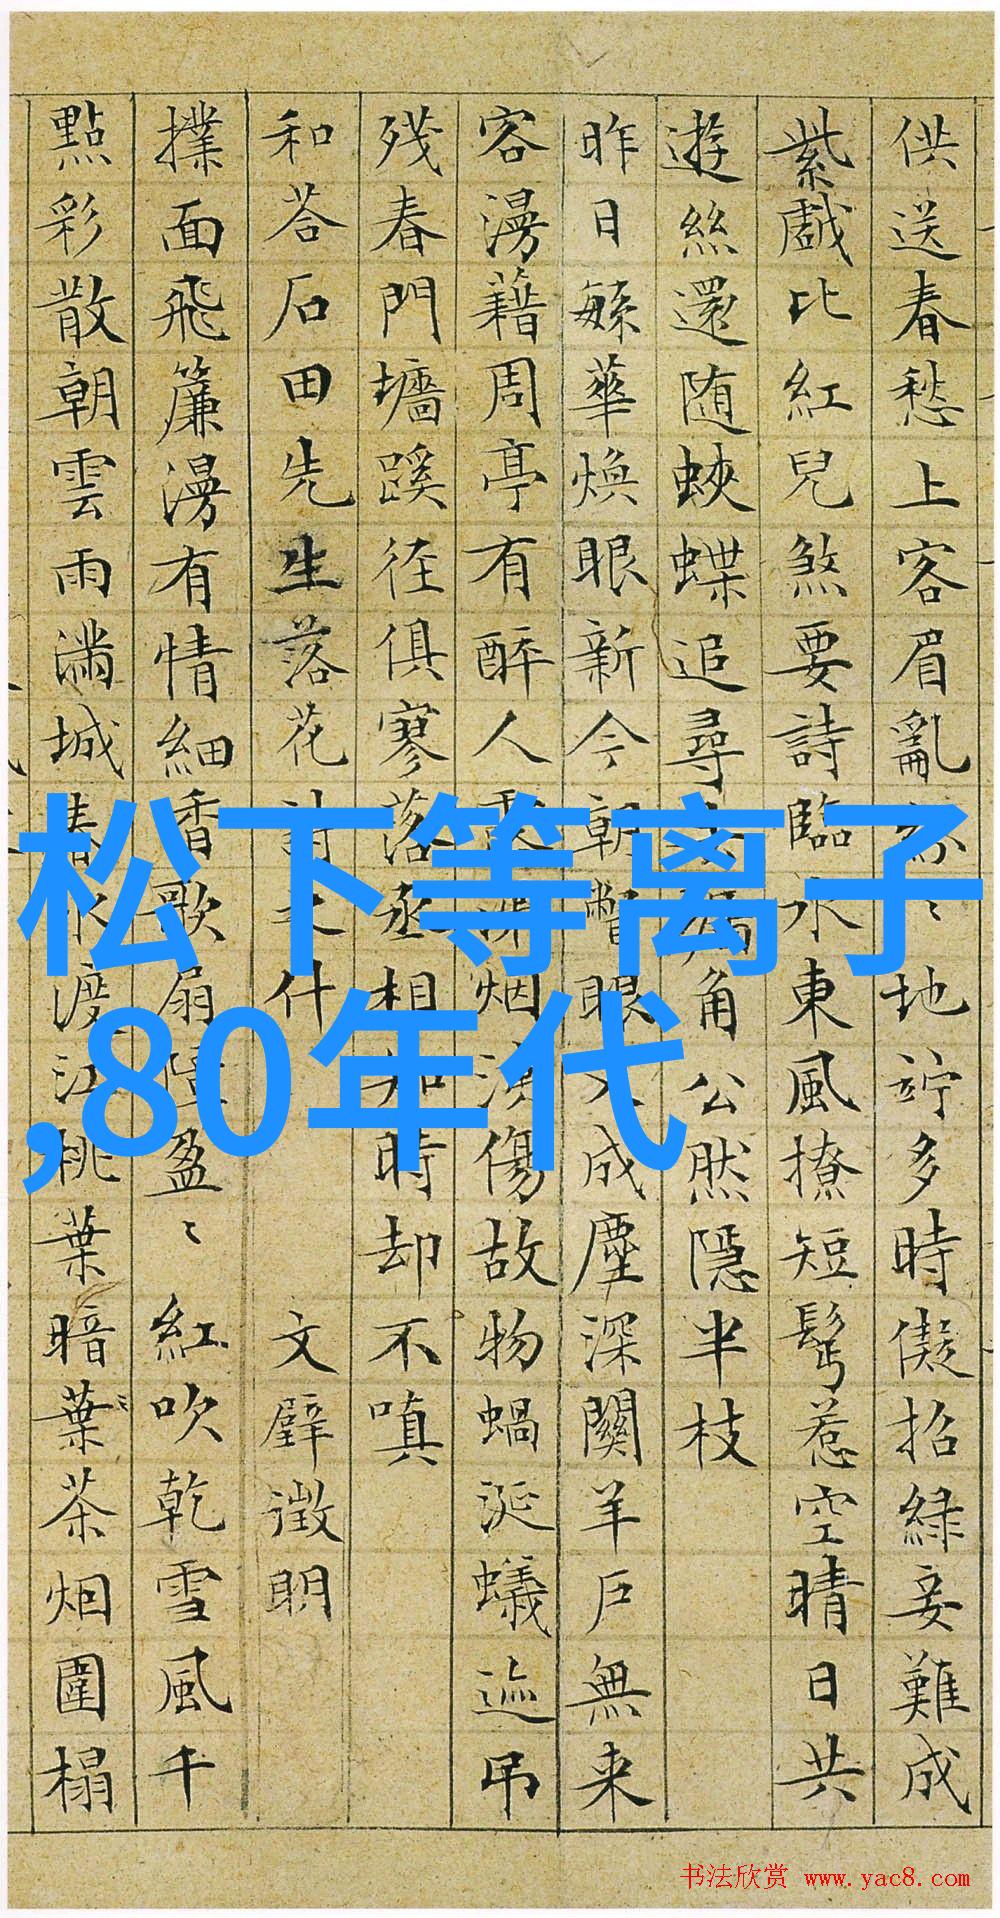 供送春愁上客眉亂紛〻地竚多時儗招緑妾難成
紫戲比紅兒煞要詩臨水東風撩短鬢惹空晴日共
遊絲還随蛺蝶追尋角公然隱半枝
昨日繁華煥眼新今朝瞥眼又成塵深關羊户無来
客漫藉周亭有醉人露涕烟洟傷故物蝸涎蟻迹吊
残春門墻蹊徑俱寥落丞相知時却不嗔
和荅石田先生落花詩之什 文壁徵明
撲面飛簾漫有情細香歌扇障盈〻紅吹乾雪風千
點彩散朝雲雨滿城春水渡江桃葉暗葉茶烟圍榻
松下等离子
,80年代
书法欣赏 www.yac8.com